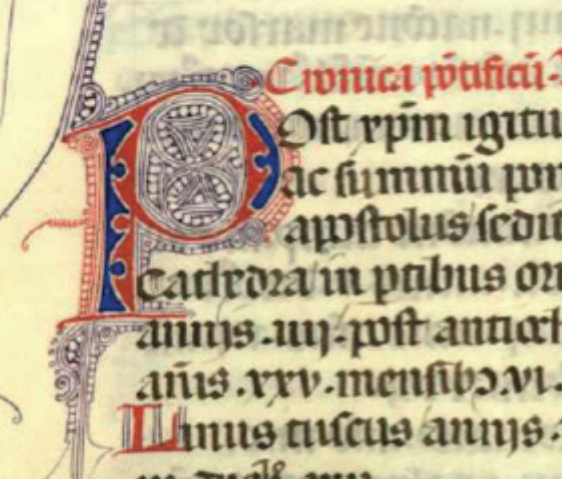 Cronica põtificũ.
Post xp̃m igitu
ac sum̃mũ pon
apostolus sedit
Cathedra in ptibus ori
annis .iiij. post antioch
añis .xxv. mensibꝫ .vi.
Linus tuscus annis.